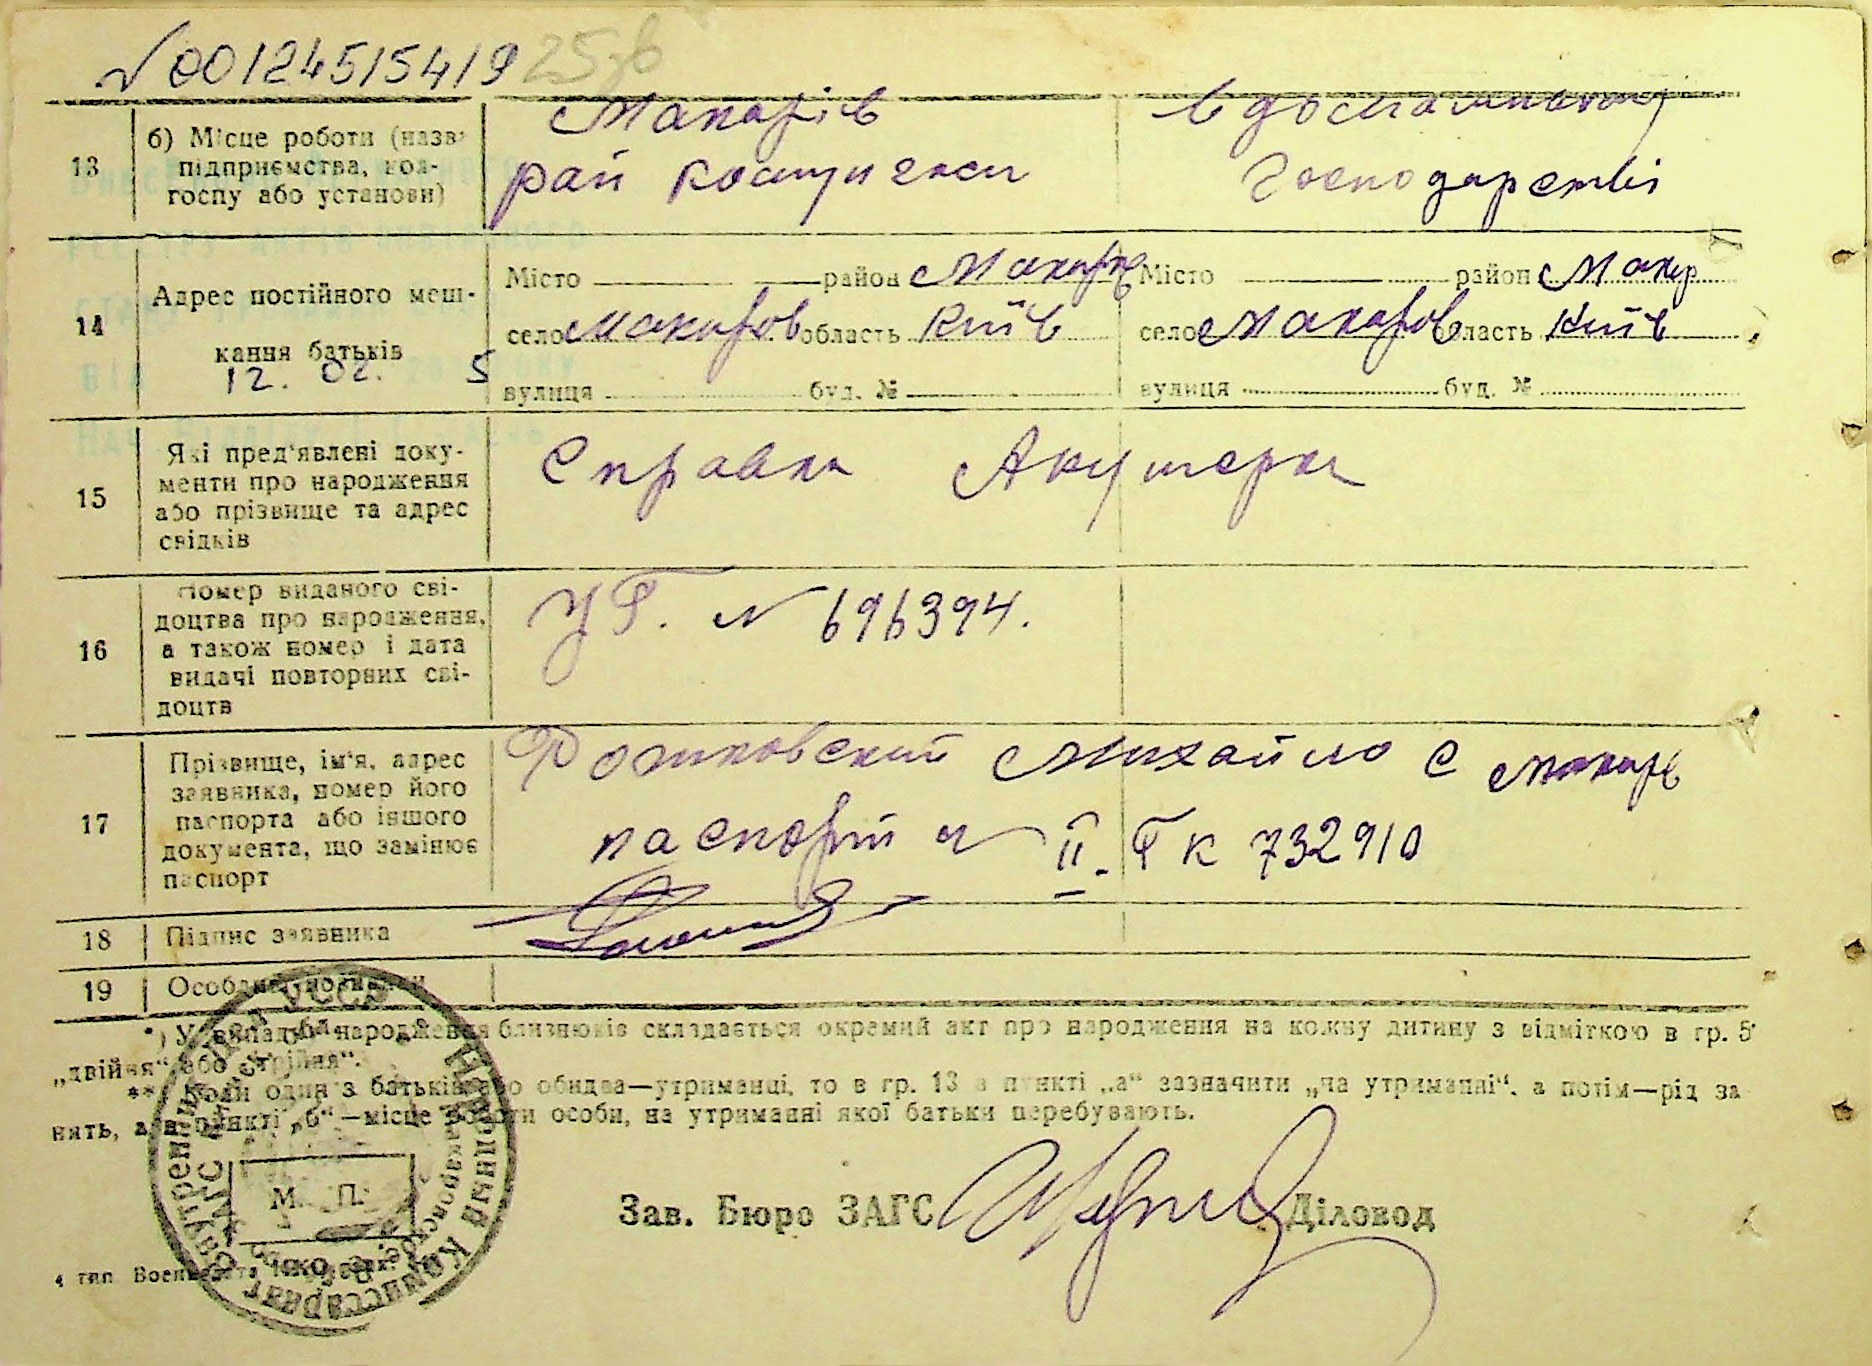 № 00124515419 25зв
13 б) Місце роботи (назва підприємства, кол-
госпу або установи)
Макарів
рай
в домашньому
Господарстві
14 Адрес постійного меш-
кання батьків
12. 02. 5
Місто район Макарів
село Макаров область Київ
вулиця буд. №
Місто район Макар
село Макаров область Київ
вулиця буд. №
15 Які пред'явлені доку-
менти про народження
або прізвище та адрес
свідків
Справка Акушерки
16 Номер виданого сві-
доцтва про народження,
а також номер і дата
видачі повторних сві-
доцтв
УГ. № 696394.
17 Прізвище, ім'я, адрес
заявника, номер його
паспорта або іншого
документа, що замінює
паспорт
Михайло с Макарів
паспорт № II - ГК 732910
18 Підпис заявника
19 Особливі
*) У випадку народження близнюків складається окремий акт про народження на кожну дитину з відміткою в гр. 5
„двійня“ або „трійня“.
** Коли один з батьків або обидва—утриманці, то в гр. 13 в пункті „а“ зазначити „на утриманні“, а потім—рід за
нять, а в пункті „б“—місце роботи особи, на утриманні якої батьки перебувають.
Народный Комиссариат Внутренних Дел УССР
М. П.
Зав. Бюро ЗАГС Діловод
4 тип